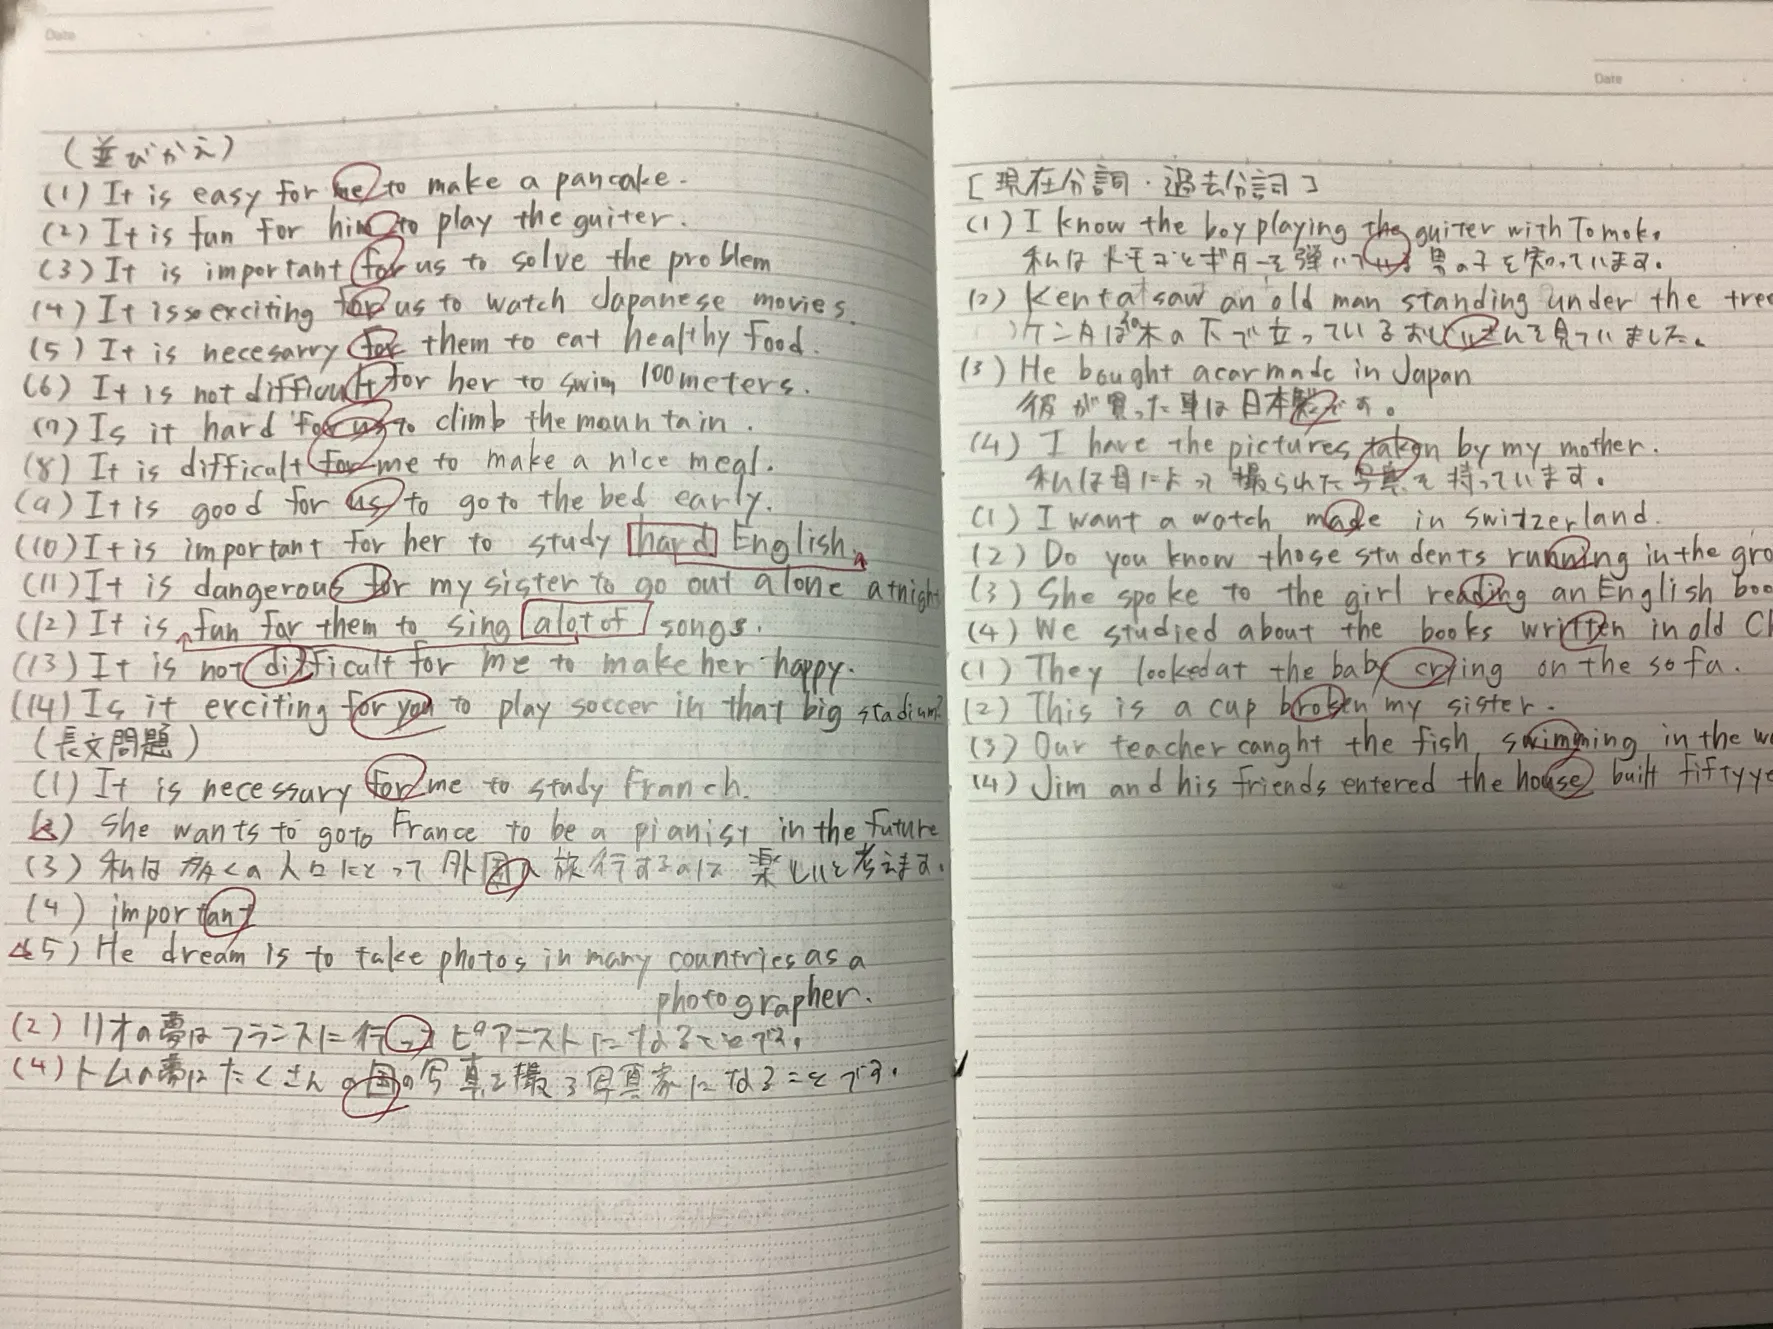 Date
(並びかえ)
(1) It is easy for me to make a pancake.
(2) It is fun for him to play the guiter.
(3) It is important for us to solve the problem
(4) It is so exciting for us to watch Japanese movies.
(5) It is necesarry for them to eat healthy food.
(6) It is not difficult for her to swim 100meters.
(7) Is it hard for us to climb the mountain.
(8) It is difficult for me to make a nice meal.
(9) It is good for us to go to the bed early.
(10) It is important for her to study hard English.
(11) It is dangerous for my sister to go out alone at night
(12) It is fun for them to sing alot of songs.
(13) It is not difficult for me to make her happy.
(14) Is it erciting for you to play soccer in that big stadium?
(長文問題)
(1) It is necessary for me to study Franch.
) She wants to go to France to be a pianist in the future
(3) 私は多くの人口にとって外国へ旅行するのは楽しいと考えます.
(4) important
5) He dream is to take photos in many countries as a
photographer.
(2) リオの夢はフランスに行って ピアニストになることです.
(4) トムの夢はたくさんの国の写真を撮る写真家になることです.
Date
[現在分詞・過去分詞]
(1) I know the boy playing the guiter with Tomoko
私はトモコとギターを弾いている男の子を知っています.
(2) Kenta saw an old man standing under the tree
ケンタは木の下で立っているおじいさんを見ていました.
(3) He bought a car made in Japan
彼が買った車は日本製です.
(4) I have the pictures taken by my mother.
私は母によって撮られた写真を持っています.
(1) I want a watch made in switzerland.
(2) Do you know those students running in the gro
(3) She spoke to the girl reading an English boo
(4) We studied about the books written in old Ch
(1) They looked at the baby crying on the sofa.
(2) This is a cup broken my sister.
(3) Our teacher canght the fish swimming in the wa
(4) Jim and his friends entered the house built fiftyye